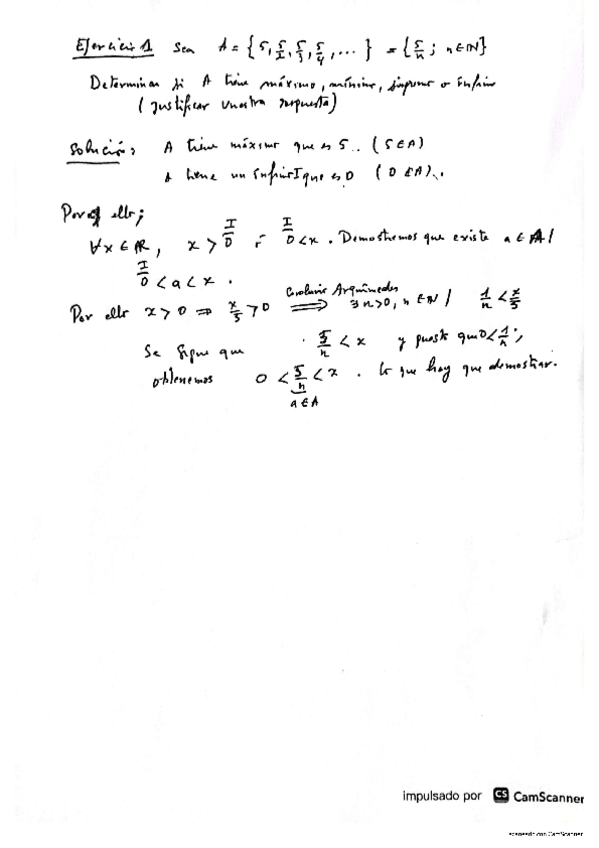 Ejercicio 1 Sea A = { 5, 5/2, 5/3, 5/4, ... } = { 5/n ; n ∈ ℕ }
Determinar si A tiene máximo, mínimo, supremo o ínfimo
( justificar vuestra respuesta)
Solución: A tiene máximo que es 5.. (5 ∈ A)
A tiene un ínfimo I que es 0 (0 ∉ A)..
Por ello;
∀x ∈ ℝ, x > I/0 ó I/0 < x . Demostremos que existe a ∈ A /
I/0 < a < x .
Por ello x > 0 ⇒ x/5 > 0 ⟹ Arquímedes ∃ n>0, n ∈ ℕ / 1/n < x/5
Se sigue que 5/n < x y puesto que 0 < 1/n ;
obtenemos 0 < 5/n < x . lo que hay que demostrar.
a ∈ A
impulsado por CS CamScanner
escaneado con CamScanner